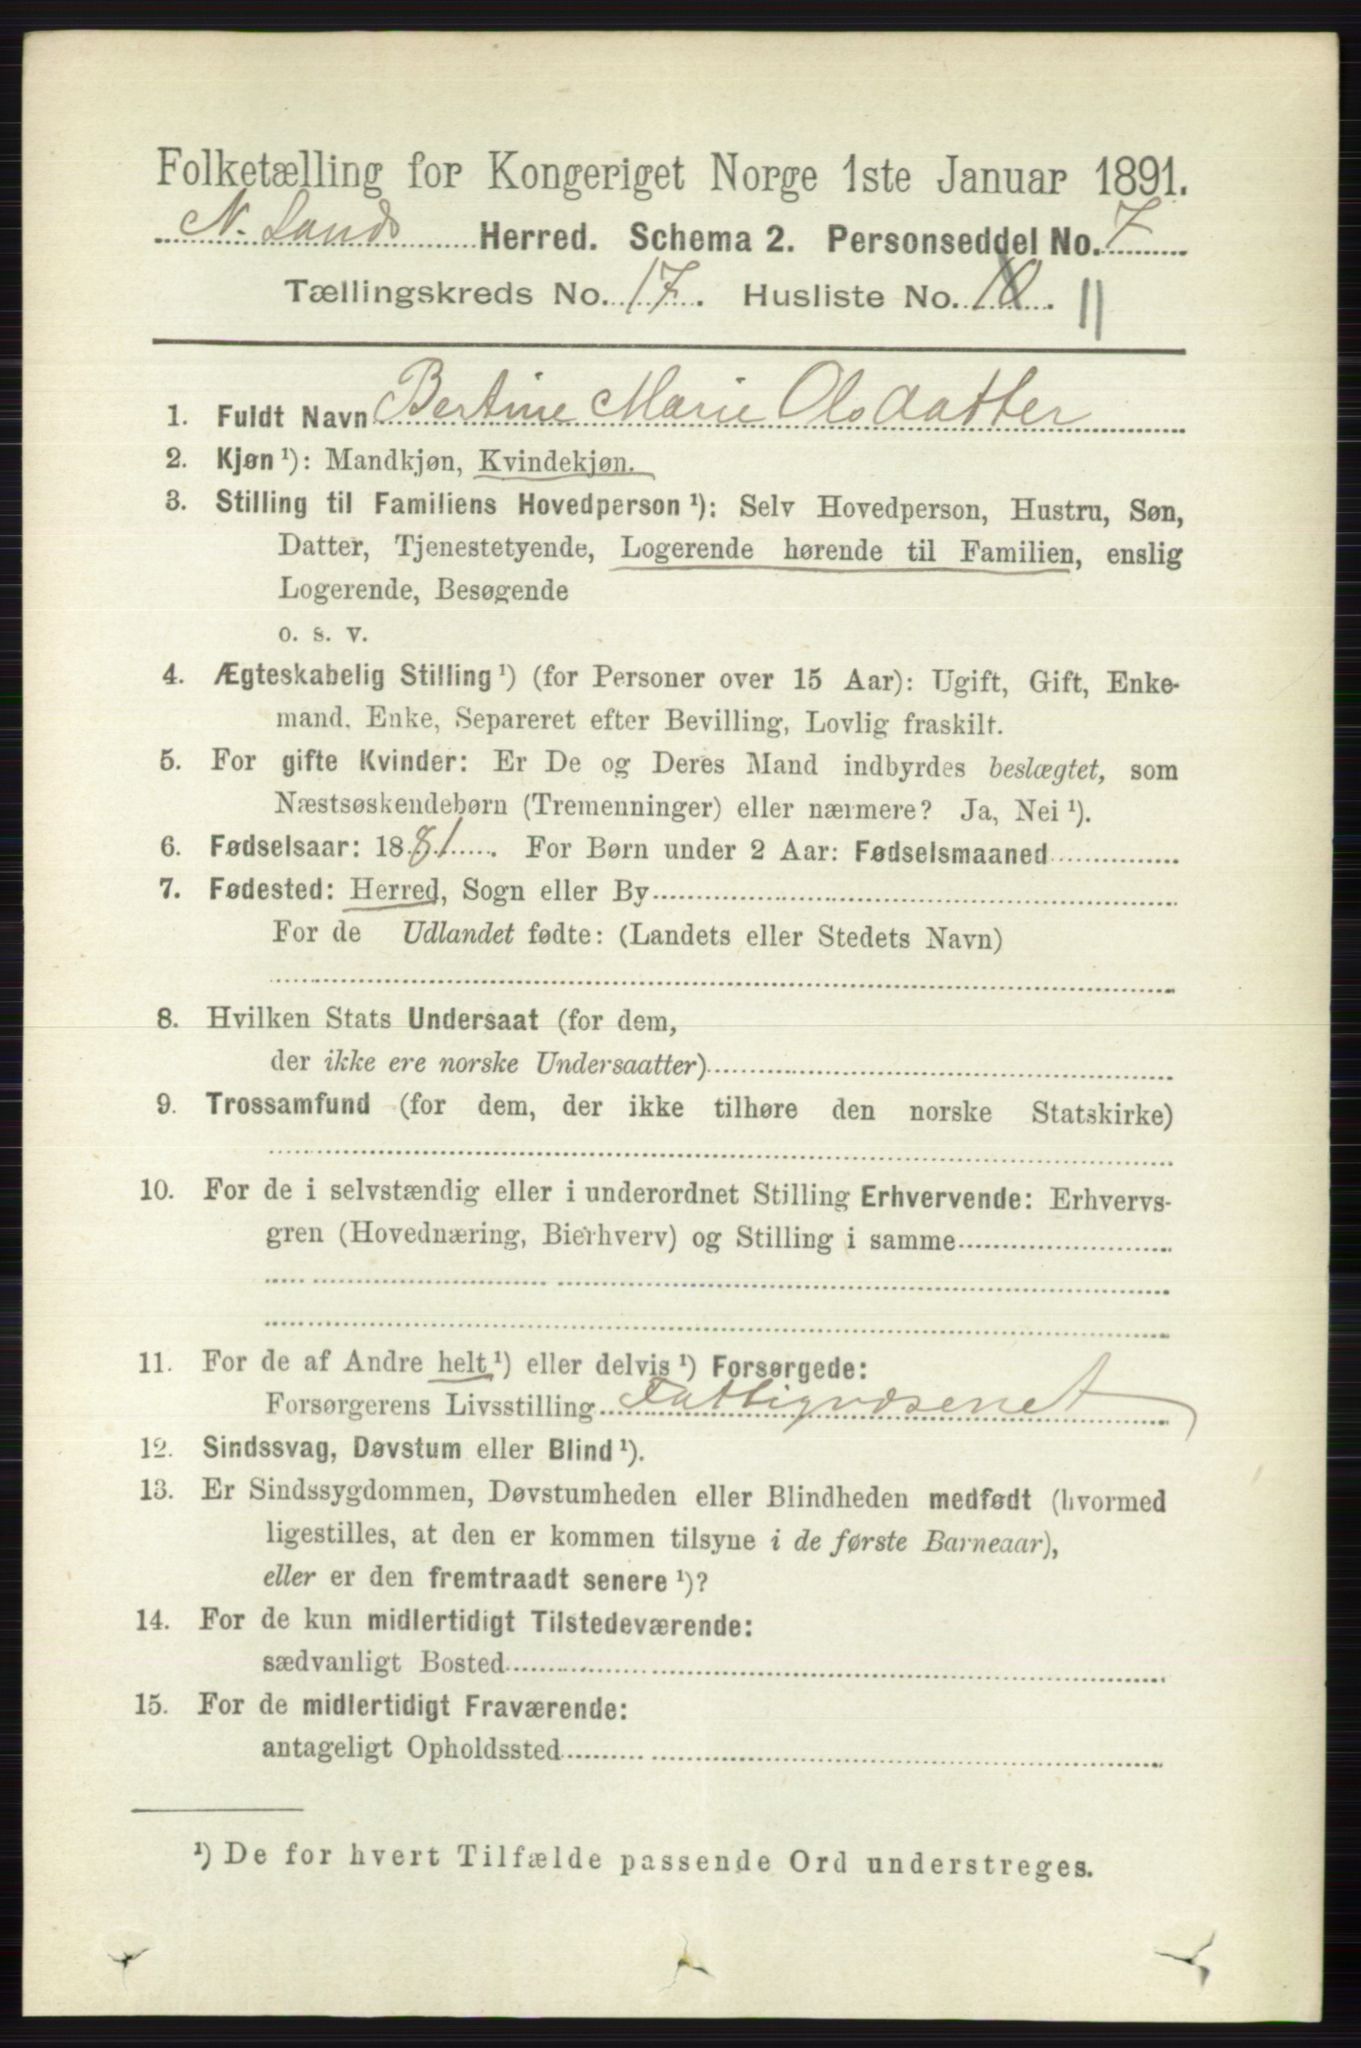 Folketælling for Kongeriget Norge 1ste Januar 1891.
N. Lands Herred. Schema 2. Personseddel No. 7
Tællingskreds No. 17. Husliste No. 10. 11
1. Fuldt Navn Bertine Marie Olsdatter
2. Kjøn ¹): Mandkjøn, Kvindekjøn.
3. Stilling til Familiens Hovedperson ¹): Selv Hovedperson, Hustru, Søn,
Datter, Tjenestetyende, Logerende hørende til Familien, enslig
Logerende, Besøgende
o. s. v.
4. Ægteskabelig Stilling ¹) (for Personer over 15 Aar): Ugift, Gift, Enke-
mand, Enke, Separeret efter Bevilling, Lovlig fraskilt.
5. For gifte Kvinder: Er De og Deres Mand indbyrdes beslægtet, som
Næstsøskendebørn (Tremenninger) eller nærmere? Ja, Nei ¹).
6. Fødselsaar: 1881. For Børn under 2 Aar: Fødselsmaaned
7. Fødested: Herred, Sogn eller By
For de Udlandet fødte: (Landets eller Stedets Navn)
8. Hvilken Stats Undersaat (for dem,
der ikke ere norske Undersaatter)
9. Trossamfund (for dem, der ikke tilhøre den norske Statskirke)
10. For de i selvstændig eller i underordnet Stilling Erhvervende: Erhvervs-
gren (Hovednæring, Bierhverv) og Stilling i samme
11. For de af Andre helt ¹) eller delvis ¹) Forsørgede:
Forsørgerens Livsstilling Fattigvæsenet
12. Sindssvag, Døvstum eller Blind ¹).
13. Er Sindssygdommen, Døvstumheden eller Blindheden medfødt (hvormed
ligestilles, at den er kommen tilsyne i de første Barneaar),
eller er den fremtraadt senere ¹)?
14. For de kun midlertidigt Tilstedeværende:
sædvanligt Bosted
15. For de midlertidigt Fraværende:
antageligt Opholdssted
¹) De for hvert Tilfælde passende Ord understreges.